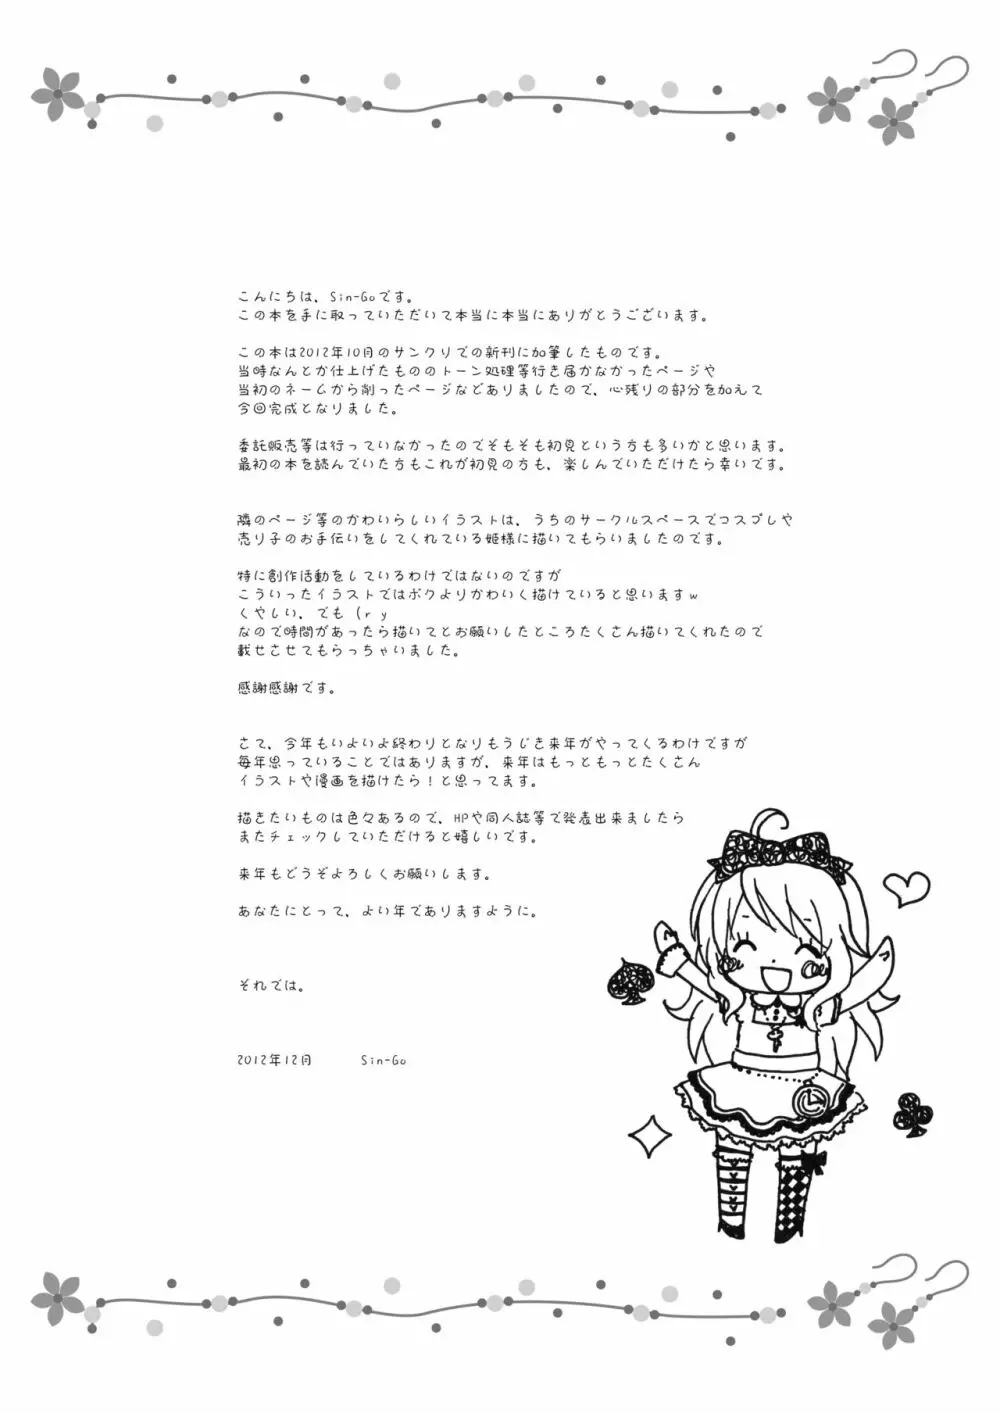 こんにちは、Sin-Goです。
この本を手に取っていただいて本当に本当にありがとうございます。
この本は2012年10月のサンクリでの新刊に加筆したものです。
当時なんとか仕上げたもののトーン処理等行き届かなかったページや
当初のネームから削ったページなどありましたので、心残りの部分を加えて
今回完成となりました。
委託販売等は行っていなかったのでそもそも初見という方も多いかと思います。
最初の本を読んでいた方もこれが初見の方も、楽しんでいただけたら幸いです。
隣のページ等のかわいらしいイラストは、うちのサークルスペースでコスプレや
売り子のお手伝いをしてくれている姫様に描いてもらいましたのです。
特に創作活動をしているわけではないのですが
こういったイラストではボクよりかわいく描けていると思いますw
くやしい、でも（ry
なので時間があったら描いてとお願いしたところたくさん描いてくれたので
載せさせてもらっちゃいました。
感謝感謝です。
さて、今年もいよいよ終わりとなりもうじき来年がやってくるわけですが
毎年思っていることではありますが、来年はもっともっとたくさん
イラストや漫画を描けたら！と思ってます。
描きたいものは色々あるので、HPや同人誌等で発表出来ましたら
またチェックしていただけると嬉しいです。
来年もどうぞよろしくお願いします。
あなたにとって、よい年でありますように。
それでは。
2012年12月　　　Sin-Go